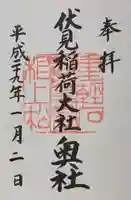 奉拝
伏見稲荷大社奥社
平成二十九年一月二日